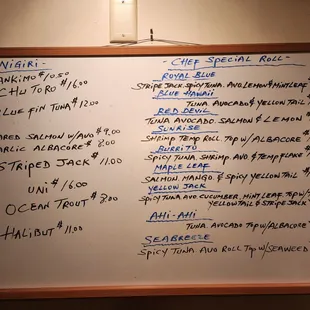 NIGIRI-
ANKIMO $10.50
CHU TORO $16.00
BLUE FIN TUNA $12.00
SEARED SALMON W/AVO $9.00
GARLIC ALBACORE $8.00
STRIPED JACK $11.00
UNI $16.00
OCEAN TROUT $
HALIBUT $11.00
- CHEF SPECIAL ROLL -
ROYAL BLUE
STRIPE JACK. SPICY TUNA. AVO. LEMON & MINT LEAF $
BLUE HAWAII
TUNA. AVOCADO & YELLOW TAIL
RED DEVIL
TUNA. AVOCADO. SALMON & LEMON $
SUNRISE
SHRIMP TEMP ROLL. TOP W/ ALBACORE $
BURRITO
SPICY TUNA. SHRIMP. AVO & TEMP FLAKE
MAPLE LEAF
SALMON. MANGO. & SPICY YELLOW TAIL $
YELLOW JACK
SPICY TUNA AVO. CUCUMBER. MINT LEAF. TOP W/
YELLOWTAIL & STRIPE JACK
AHI-AHI
TUNA. AVOCADO TOP W/ ALBACORE $
SEABREEZE
SPICY TUNA AVO ROLL TOP W/ SEAWEED